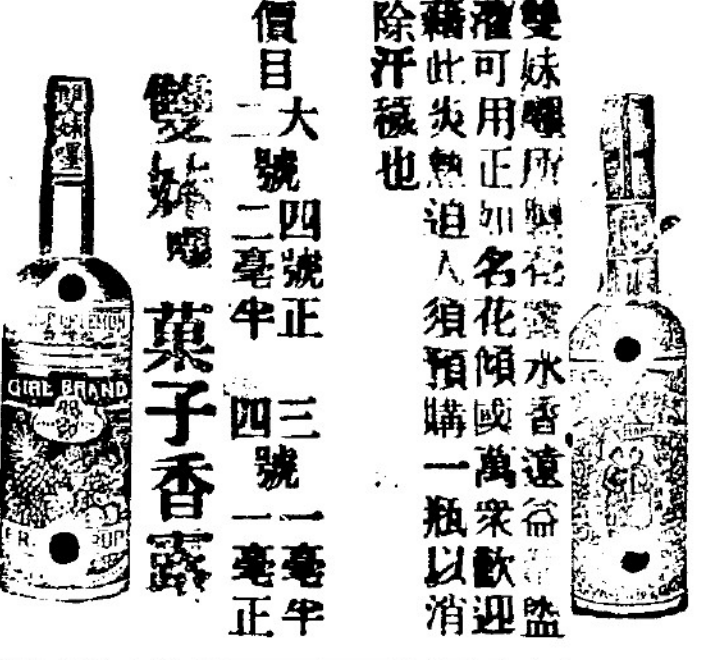 雙妹嘜所製花露水香遠益盥
濯可用正如名花傾國萬衆歡迎
藉此炎熱迫人須預購一瓶以消
除汗穢也
價目
大 號 四號正 三 號 一毫半
二 二毫半 四 一毫正
雙妹嘜 菓子香露
雙妹嘜
LEMON
GIRL BRAND